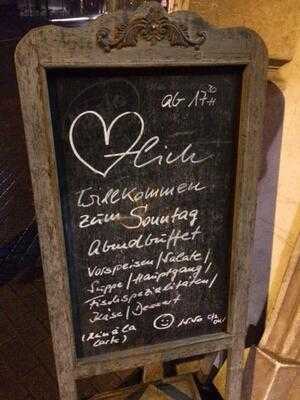 ab 17³⁰ H
♡lich
Willkommen
zum Sonntag
Abendbüffet
Vorspeisen/Salate/
Suppe/Hauptgang/
Fischspezialitäten/
Käse/Dessert
(kein à la
Carte) ☺